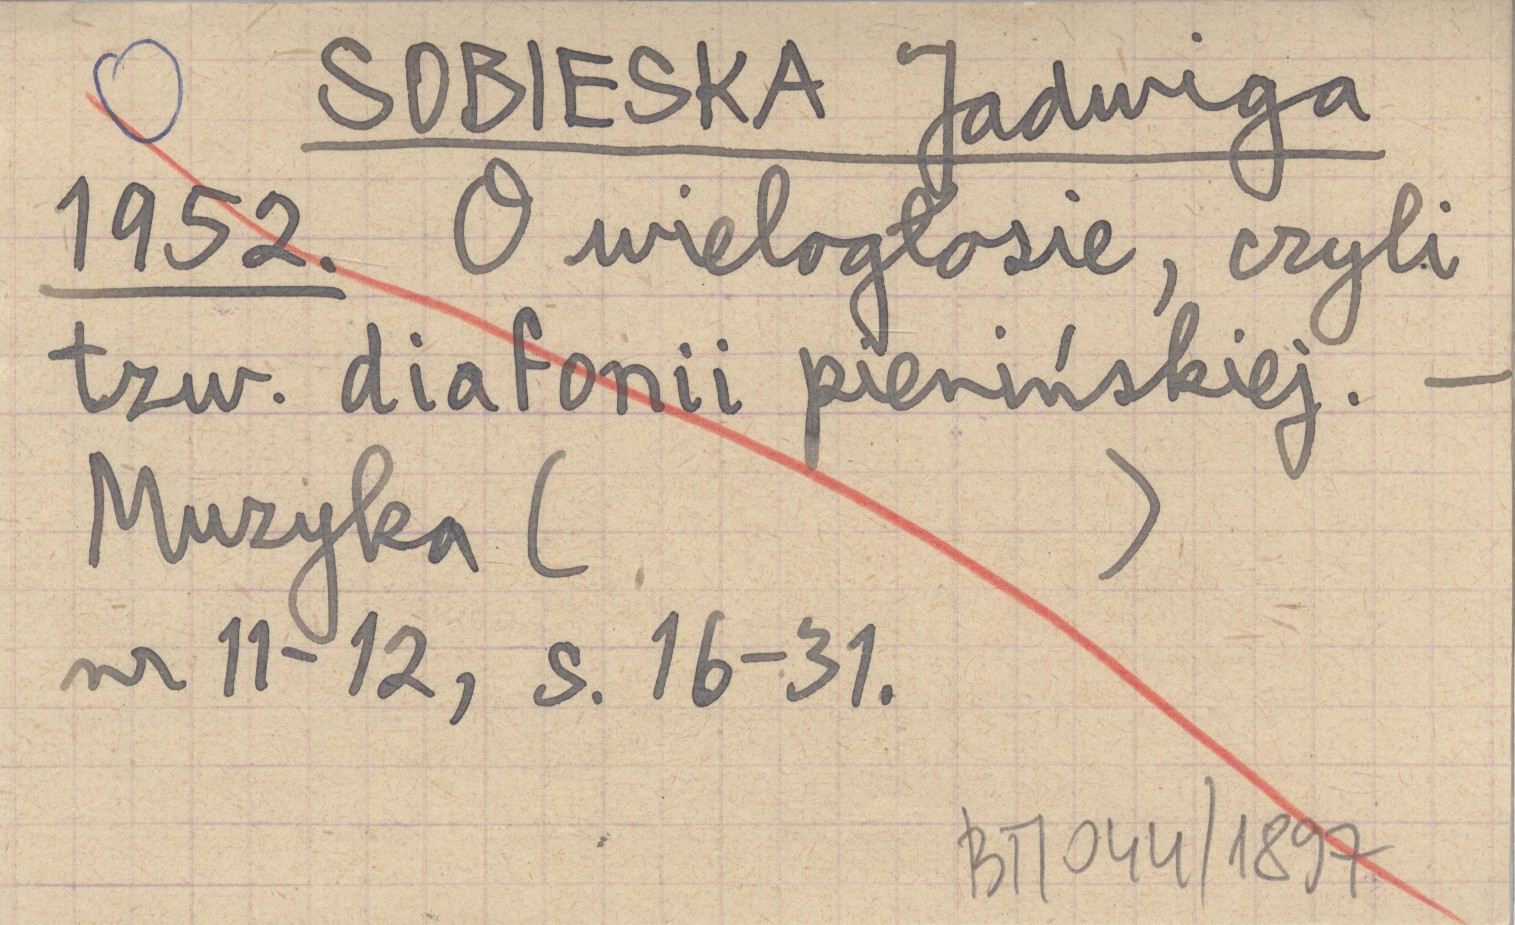 SOBIESKA Jadwiga
1952. O wielogłosie, czyli
tzw. diafonii pienińskiej. —
Muzyka ( )
nr 11-12, s. 16-31.
ВП 044/1897